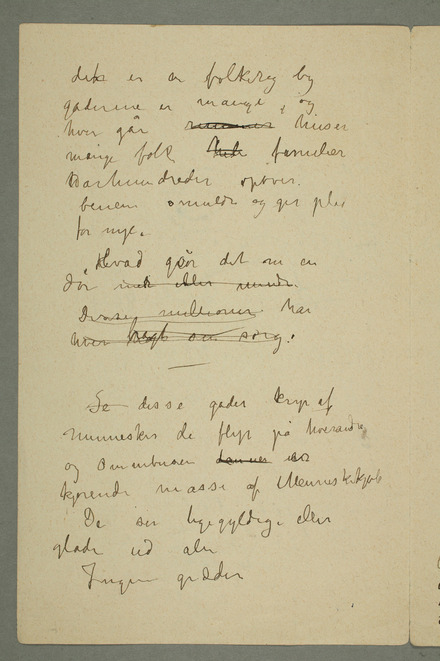 det er en folkerig by
gaderne er mange, og
hver går huser
mange folk familier
århundreder opover.
benene smuldr og gir plas
for nye.
Hvad gør det om en
dør
Disse millioner har
hver sorg.
Se disse gader kryr af
mennesker de flyt på hverandre
og omnibusen
kjørende masse af Menneskekjød
De ser ligegyldige eller
glade ud alle
Ingen græder